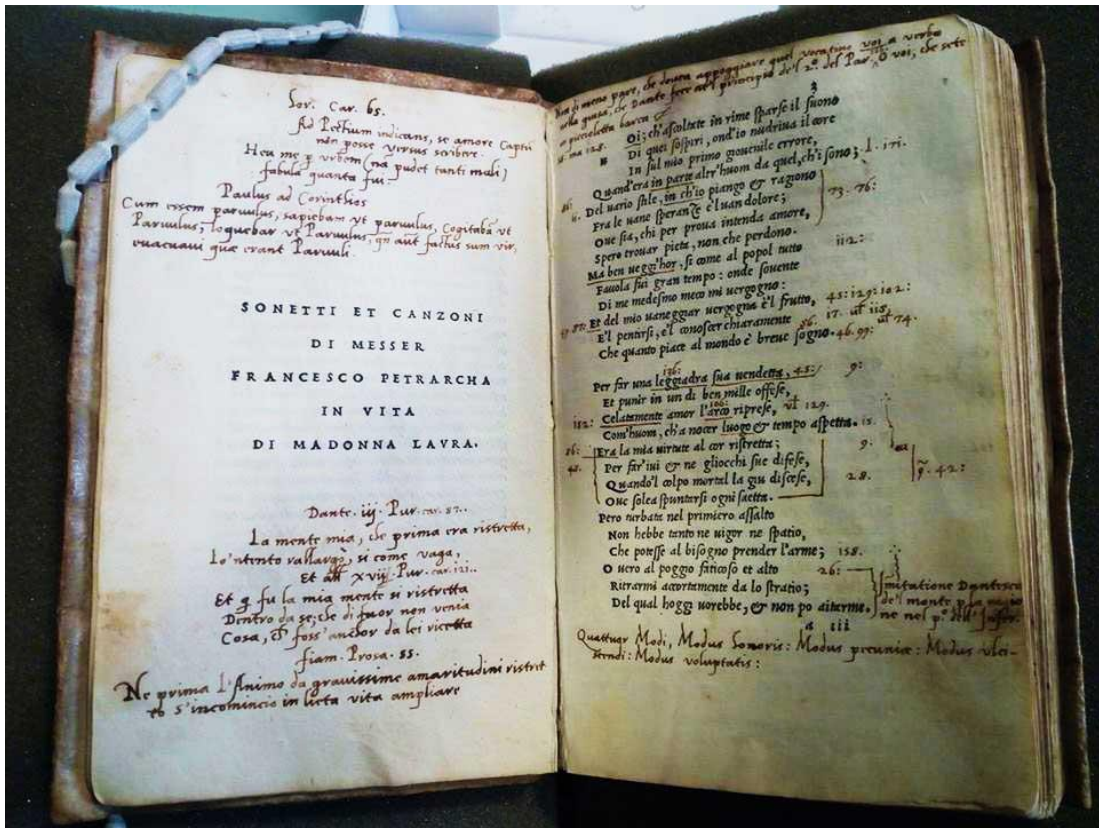 Hor. Car. 65.
Ad Pettium indicans, se amore Captū
non posse versus scribere.
Heu me p̱ urbem (nā pudet tanti mali)
fabula quanta fui.
Paulus ad Corinthios
Cum essem parvulus, sapiebam vt parvulus, Cogitabā vt
Parvulus, loquebar vt Parvulus, qn̄ aūt factus sum vir,
evacuavi quæ erant Parvuli.
SONETTI ET CANZONI
DI MESSER
FRANCESCO PETRARCHA
IN VITA
DI MADONNA LAVRA.
Dante. iij. Pur. car. 87.
La mente mia, che prima era ristretta,
Lo 'ntento rallargò, si come vaga,
Et XVij. Pur. car. 121.
Et q̄ fu la mia mente si ristretta
Dentro da se; che di fuor non venia
Cosa, che foss' anchor da lei ricetta
fiam. Prosa. 55.
Ne prima l'Animo da gravissime amaritudini ristret
to s'incomincio in lieta vita ampliare
Non di meno pare, che douea appoggiare quel vocatiuo voi a verbo
nella guisa, che Dante fece nel principio de'l 2º. del Par. O voi, che sete
in piccioletta barca
2
128. Oi; ch'ascoltate in rime sparse il suono
Di quei sospiri, ond'io nudriua il core
In sul mio primo giouenile errore,
Quand'era in parte altr'huom da quel, ch'i sono; 1. 171.
Del uario stile, in ch'io piango & ragiono 73. 76:
Fra le uane speranze e'l uan dolore;
Oue sia, chi per proua intenda amore,
Spero trouar pieta, non che perdono.
Ma ben ueggi'hor, si come al popol tutto 112:
Fauola fui gran tempo: onde souente
Di me medesmo meco mi uergogno:
Et del mio uaneggiar uergogna è'l frutto, 45: 129: 102:
E'l pentirsi, e'l conoscer chiaramente 86. 17. ul 115.
Che quanto piace al mondo è breue sogno. 46. 99: ul 74.
136:
Per far una leggiadra sua uendetta, 45: 9:
Et punir in un di ben mille offese,
106:
112: Celatamente amor l'arco riprese, ul 129.
Com'huom, ch'a nocer luogo & tempo aspetta. 15.
86: Era la mia uirtute al cor ristretta; 9.
45. Per far'iui & ne gliocchi sue difese, 42:
Quando'l colpo mortal la giu discese, 28.
Oue solea spuntarsi ogni saetta.
Pero turbata nel primiero assalto
Non hebbe tanto ne uigor ne spatio,
Che potesse al bisogno prender l'arme; 158.
O uero al poggio faticoso et alto 26:
Ritrarmi accortamente da lo stratio; Imitatione Dantesca
Del qual hoggi uorrebbe, & non po aitarme. de'l monte
ne nel pº. dell' Infer.
a iii
Quattuor Modi, Modus sonoris: Modus pecuniæ: Modus ulci-
scendi: Modus voluptatis: